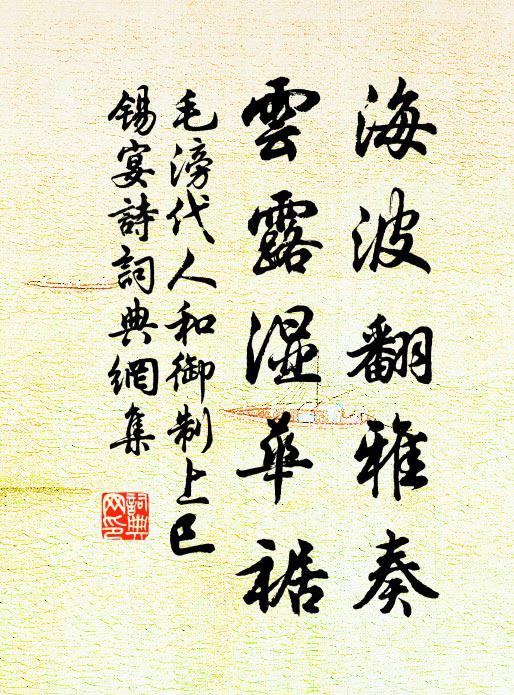 海波翻雅奏
雲露湿華裾
毛滂代人和御制上巳
锡宴詩詞典網集
詞典
网印